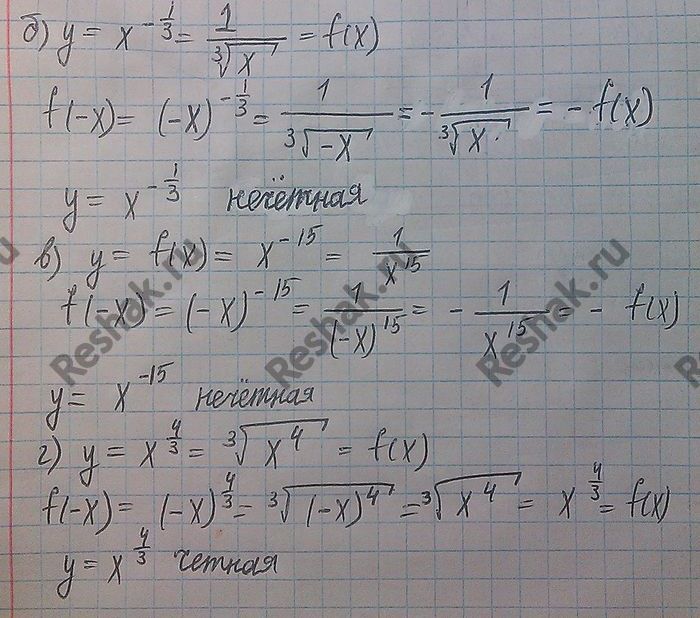 б) y = x^{-1/3} = 1/∛x = f(x)
f(-x) = (-x)^{-1/3} = 1/∛(-x) = - 1/∛x = - f(x)
y = x^{-1/3} нечётная
в) y = f(x) = x^{-15} = 1/x^{15}
f(-x) = (-x)^{-15} = 1/(-x)^{15} = - 1/x^{15} = - f(x)
y = x^{-15} нечётная
г) y = x^{4/3} = ∛(x^4) = f(x)
f(-x) = (-x)^{4/3} = ∛((-x)^4) = ∛(x^4) = x^{4/3} = f(x)
y = x^{4/3} четная
Reshak.ru
Reshak.ru
Reshak.ru